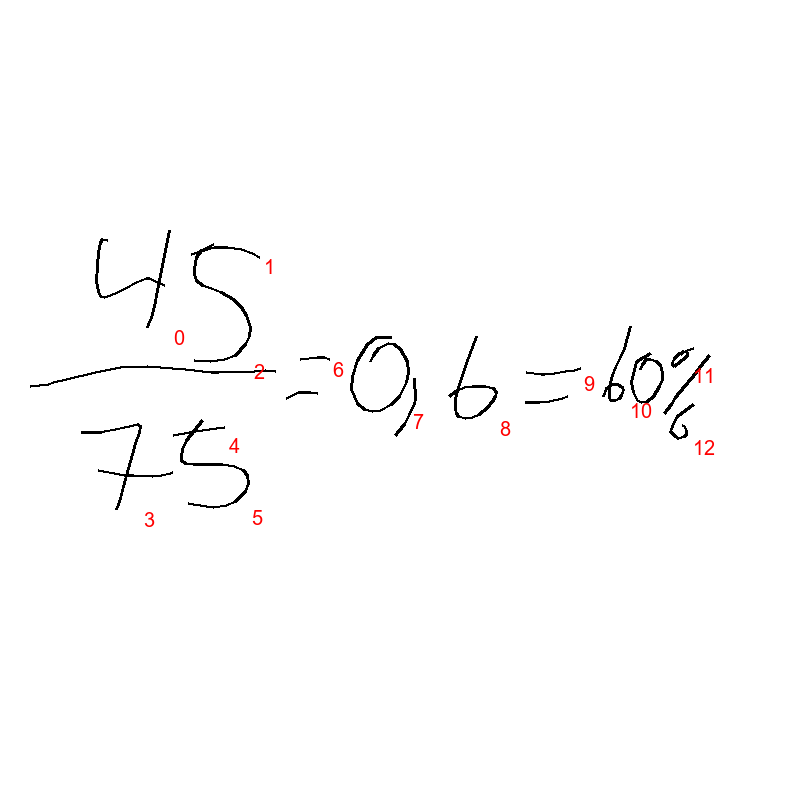 45
75
= 0,6 = 60%
0
1
2
3
4
5
6
7
8
9
10
11
12